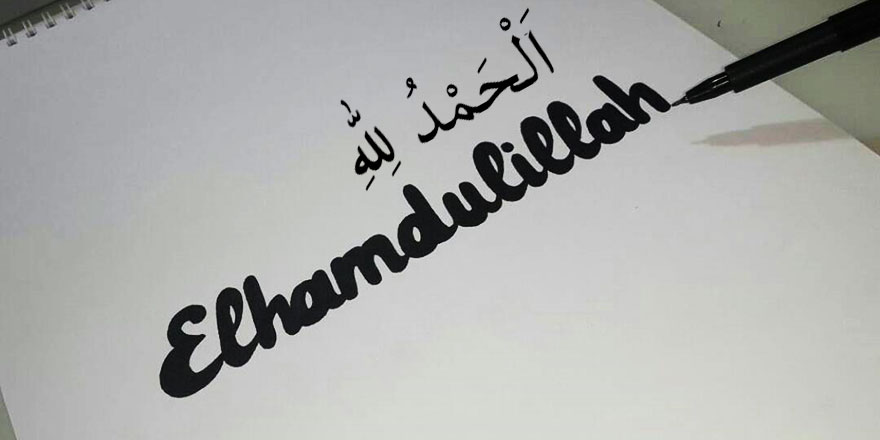 اَلْحَمْدُ لِلّٰهِ
Elhamdulillah